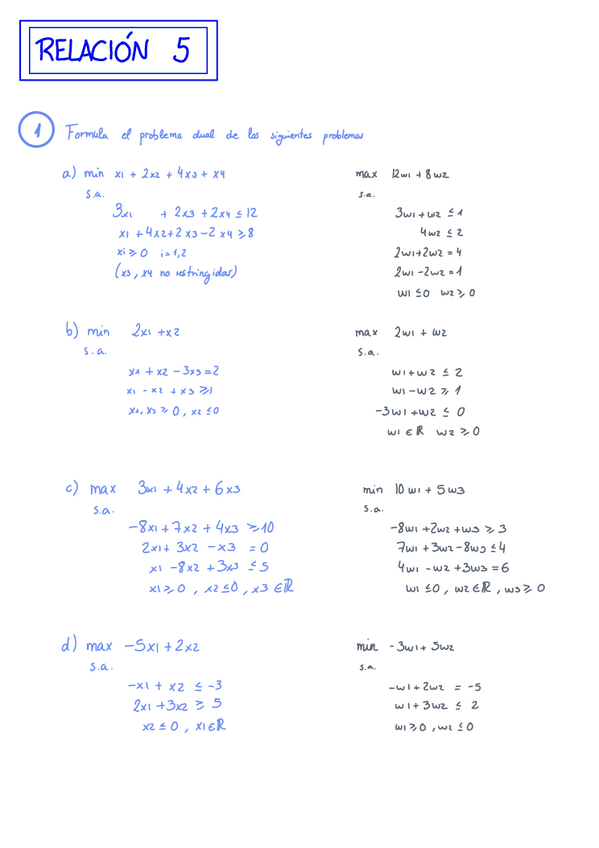 RELACIÓN 5
1 Formula el problema dual de los siguientes problemas
a) min x1 + 2x2 + 4x3 + x4
s.a.
3x1 + 2x3 + 2x4 ≤ 12
x1 + 4x2 + 2x3 - 2x4 ≥ 8
xi ≥ 0 i = 1,2
(x3, x4 no restringidas)
max 12w1 + 8w2
s.a.
3w1 + w2 ≤ 1
4w2 ≤ 2
2w1 + 2w2 = 4
2w1 - 2w2 = 1
w1 ≤ 0 w2 ≥ 0
b) min 2x1 + x2
s.a.
x1 + x2 - 3x3 = 2
x1 - x2 + x3 ≥ 1
x1, x3 ≥ 0, x2 ≤ 0
max 2w1 + w2
s.a.
w1 + w2 ≤ 2
w1 - w2 ≥ 1
-3w1 + w2 ≤ 0
w1 ∈ ℝ w2 ≥ 0
c) max 3x1 + 4x2 + 6x3
s.a.
-8x1 + 7x2 + 4x3 ≥ 10
2x1 + 3x2 - x3 = 0
x1 - 8x2 + 3x3 ≤ 5
x1 ≥ 0, x2 ≤ 0, x3 ∈ ℝ
min 10w1 + 5w3
s.a.
-8w1 + 2w2 + w3 ≥ 3
7w1 + 3w2 - 8w3 ≤ 4
4w1 - w2 + 3w3 = 6
w1 ≤ 0, w2 ∈ ℝ, w3 ≥ 0
d) max -5x1 + 2x2
s.a.
-x1 + x2 ≤ -3
2x1 + 3x2 ≥ 5
x2 ≤ 0, x1 ∈ ℝ
min -3w1 + 5w2
s.a.
-w1 + 2w2 = -5
w1 + 3w2 ≤ 2
w1 ≥ 0, w2 ≤ 0